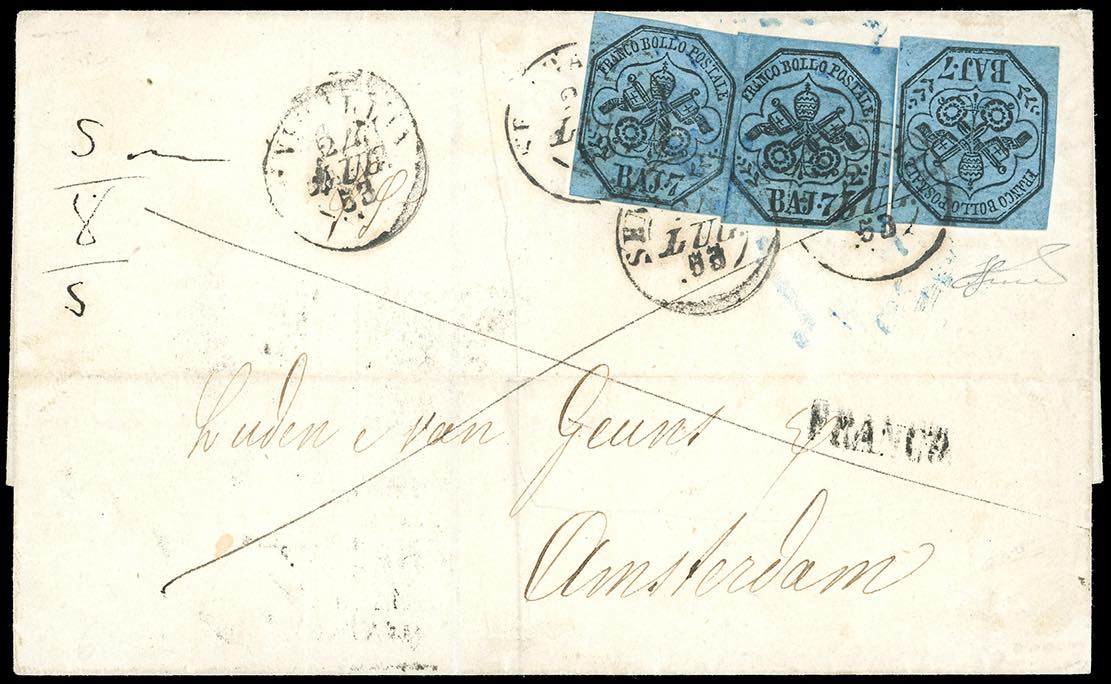 FRANCO BOLLO POSTALE
BAJ·7
FRANCO BOLLO POSTALE
BAJ·7
BAJ·7
FRANCO BOLLO POSTALE
24
LUG
53
LUG
53
53
S
8
S
FRANCO
Luden & van Geuns
Amsterdam